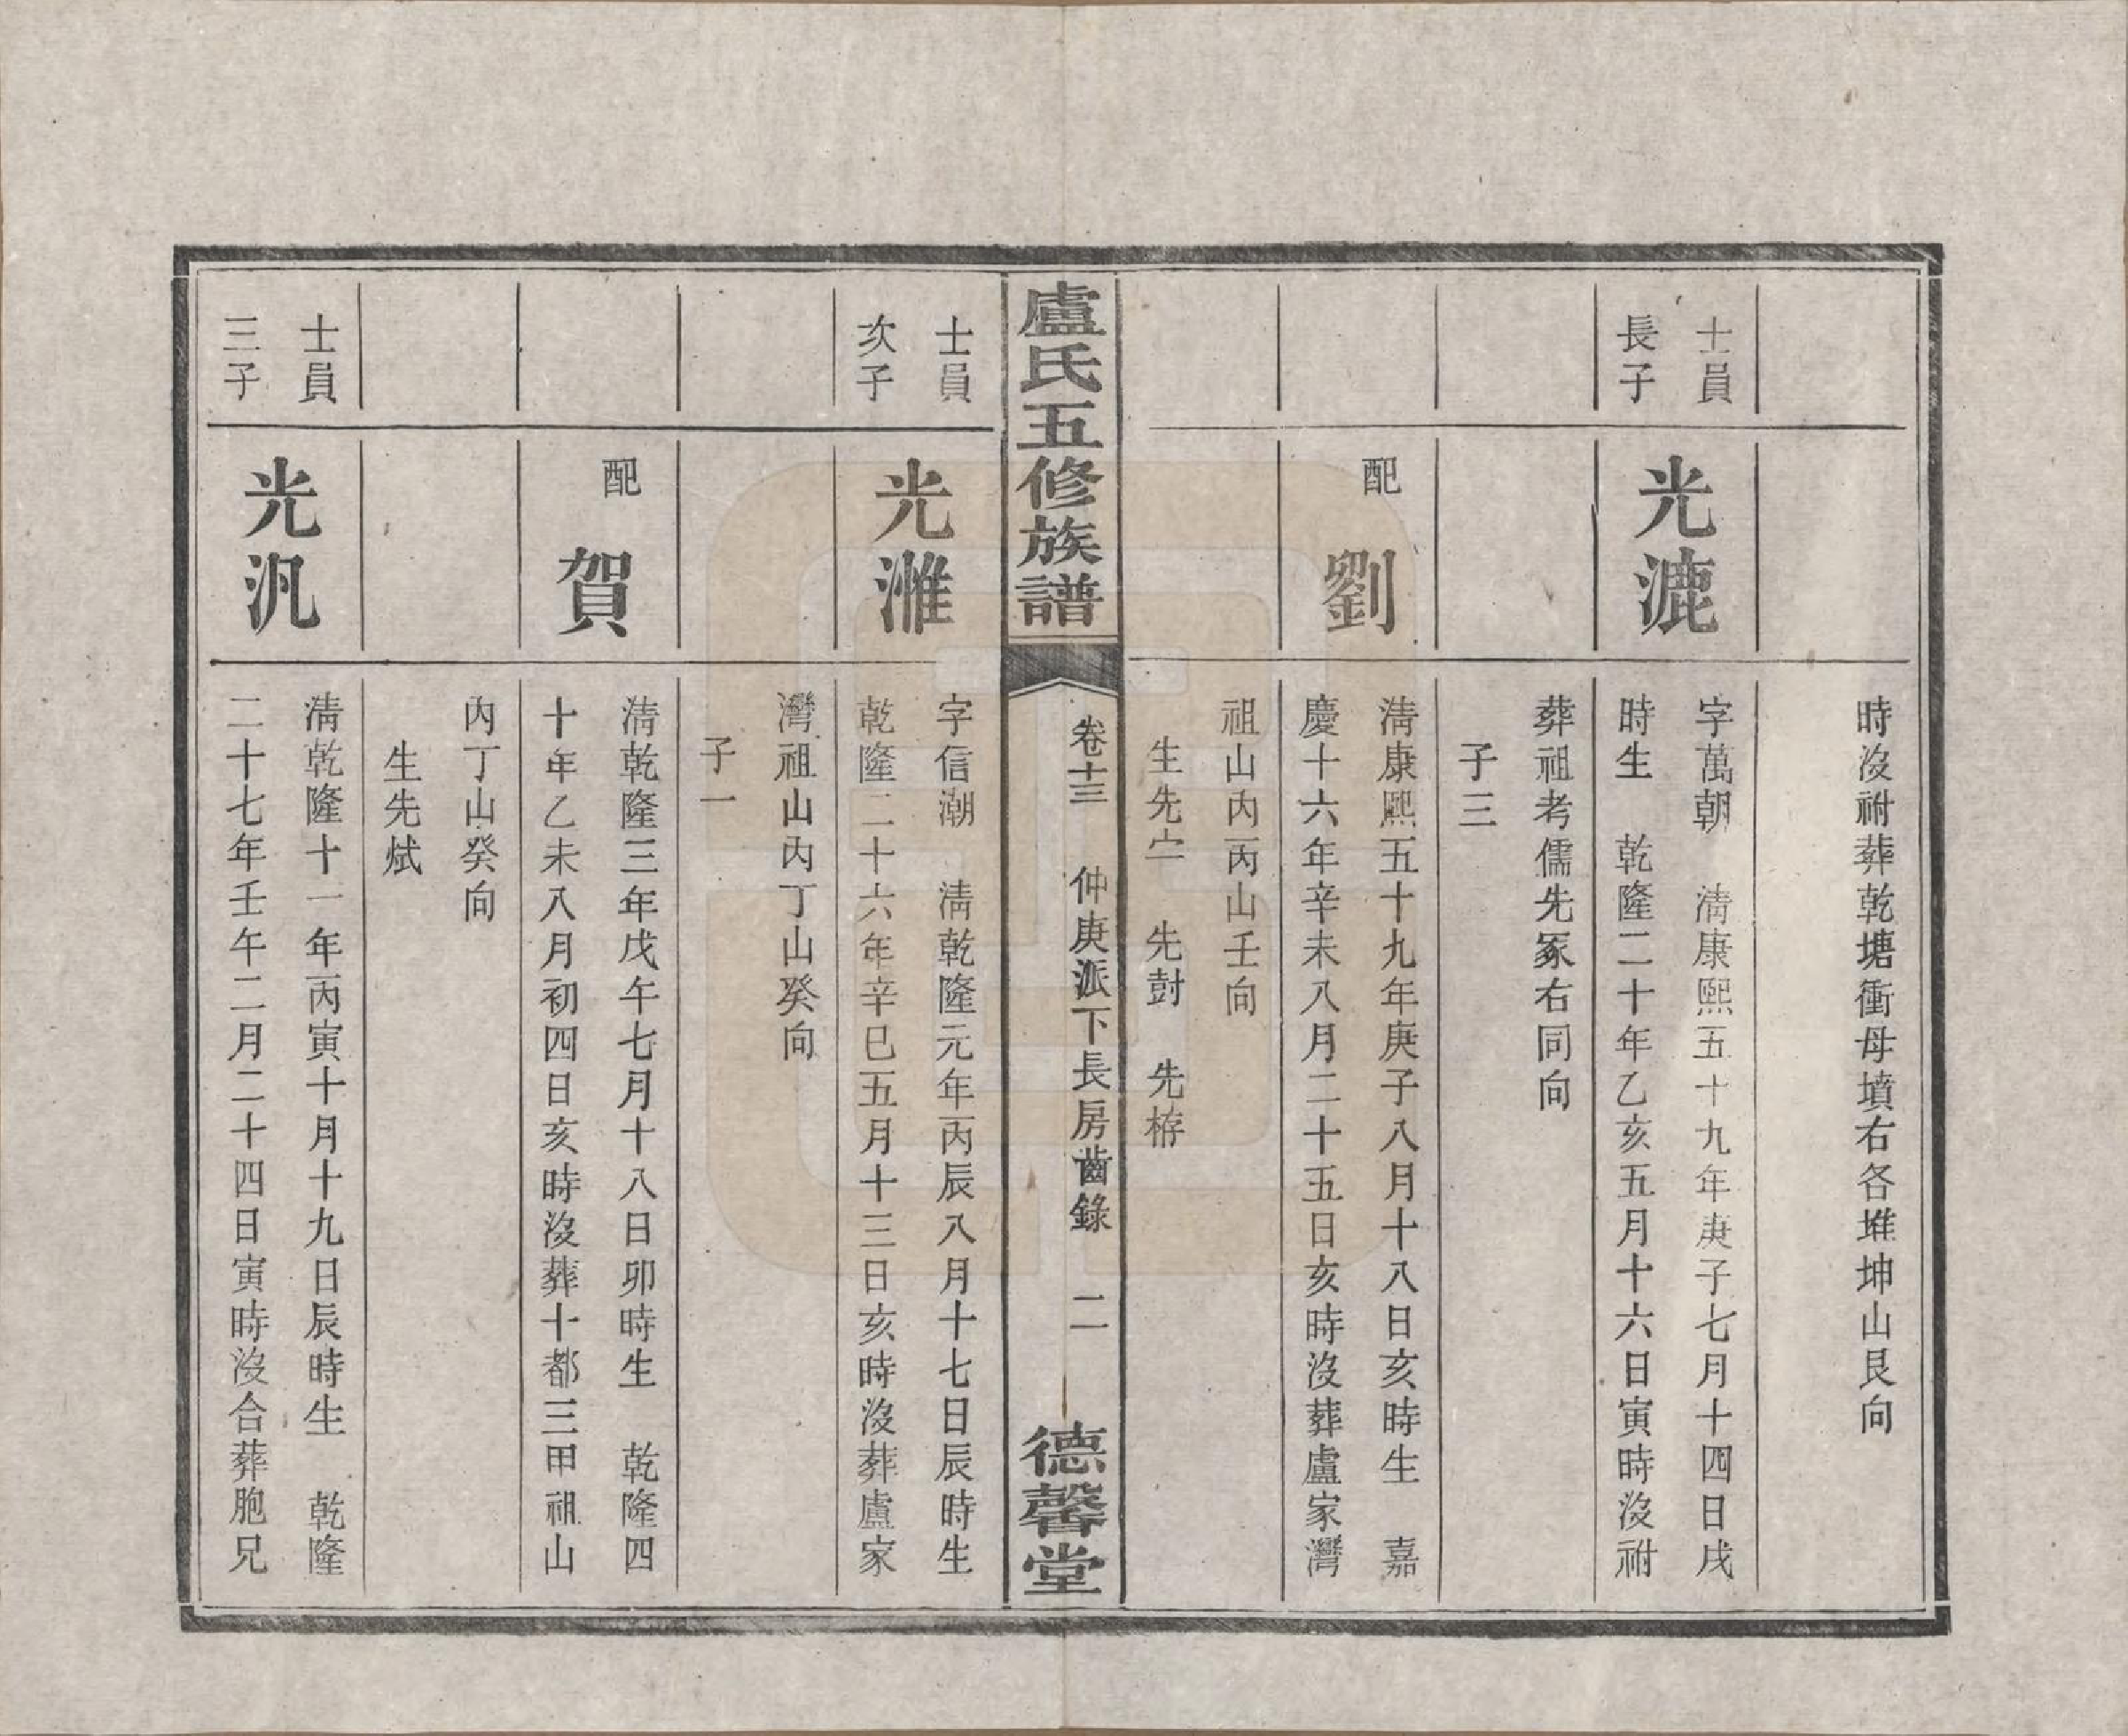 時沒祔葬乾塘衝母墳右各堆坤山艮向
士員
長子
光漉
字萬朝　淸康熙五十九年庚子七月十四日戌
時生　乾隆二十年乙亥五月十六日寅時沒祔
葬祖考儒先冢右同向
子三
配
劉
淸康熙五十九年庚子八月十八日亥時生　嘉
慶十六年辛未八月二十五日亥時沒葬盧家灣
祖山內丙山壬向
生先　先尌　先栫
盧氏五修族譜
卷十三　仲庚派下長房齒錄　二
德馨堂
士員
次子
光濰
字信潮　淸乾隆元年丙辰八月十七日辰時生
乾隆二十六年辛巳五月十三日亥時沒葬盧家
灣祖山內丁山癸向
子一
配
賀
淸乾隆三年戊午七月十八日卯時生　乾隆四
十年乙未八月初四日亥時沒葬十都三甲祖山
內丁山癸向
生先烒
士員
三子
光汎
淸乾隆十一年丙寅十月十九日辰時生　乾隆
二十七年壬午二月二十四日寅時沒合葬胞兄